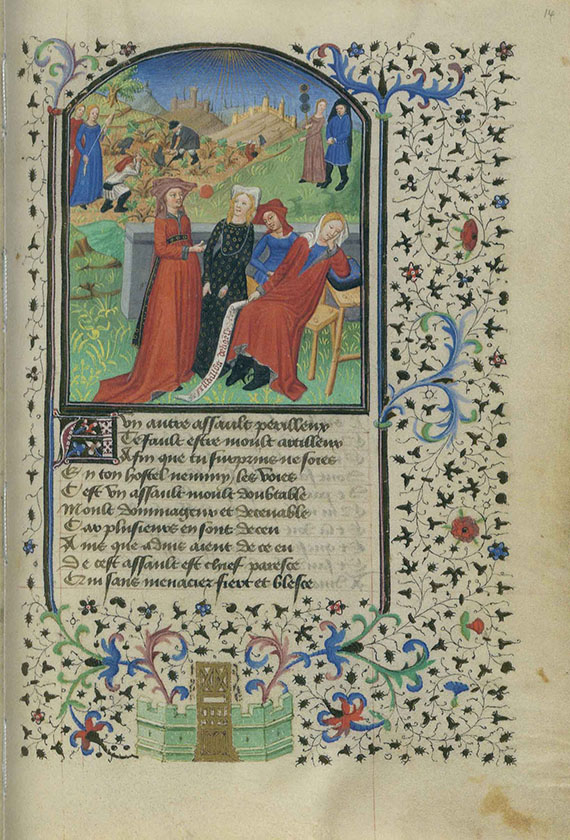 14
A von autre assault perilleux
Te fault estre moult artilleux
Afin que tu surprins ne soies
En ton hostel les voies
C est vn assault moult doubtable
Moult dommageux et deceuable
Car plusieurs en sont deceu
Ains que aduis aient de ce eu
De cest assault est chief paresce
Qui sans menacier fiert et blesce